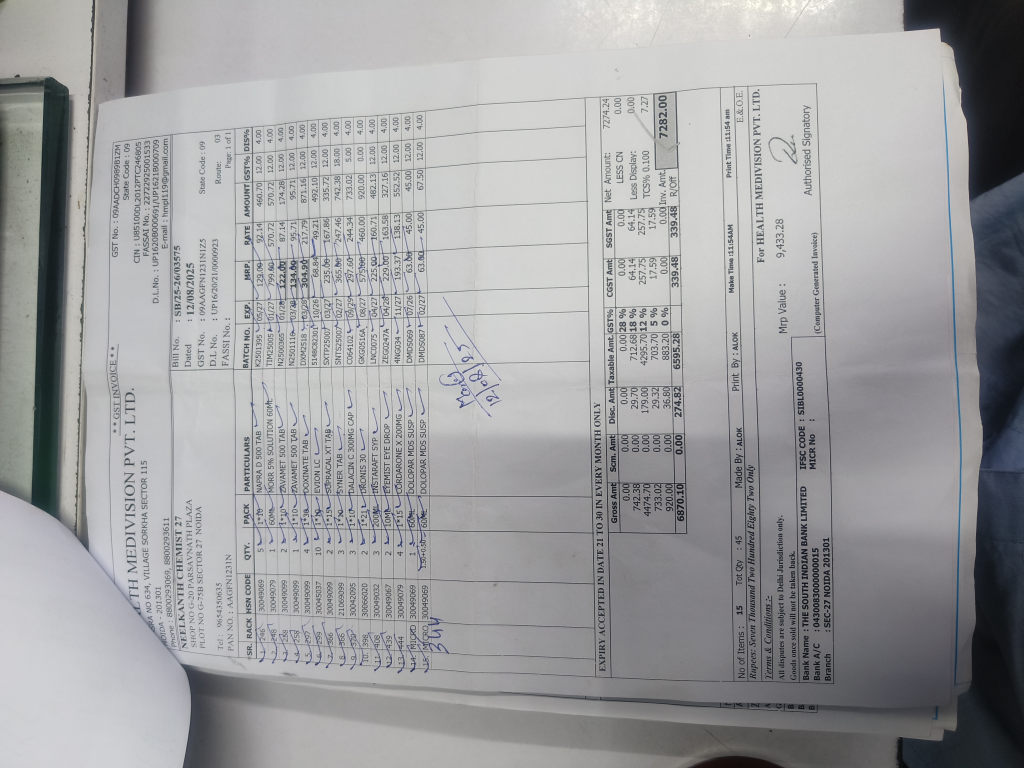 ** GST INVOICE **
LTH MEDIVISION PVT. LTD.
RA NO 634, VILLAGE SORKHA SECTOR 115
NOIDA - 201301
Phone : 8800293069, 8800293611
GST No. : 09AADCH0989B1ZM
State Code : 09
CIN : U85100DL2012PTC246805
FASSAI No. : 22722925001533
D.L.No. : UP1620B000699/UP1621B000709
E-mail : hmpl119@gmail.com
NEELKANTH CHEMIST 27
SHOP NO G-20 PARSAVNATH PLAZA
PLOT NO G-75B SECTOR 27 NOIDA
Tel : 9654350635
PAN NO. : AAGFN1231N
Bill No. : SB/25-26/03575
Dated : 12/08/2025
GST No. : 09AAGFN1231N1Z5 State Code : 09
D.L No. : UP16/20/21/0000923 Route: 03
FASSI No. : Page: 1 of 1
SR. RACK HSN CODE QTY. PACK PARTICULARS BATCH NO. EXP. MRP. RATE AMOUNT GST% DIS%
30049069 5 1*10 NAPRA D 500 TAB K2501395 05/27 129.00 92.14 460.70 12.00 4.00
30049079 1 60ML MORR 5% SOLUTION 60ML TIM25005 01/27 799.00 570.72 570.72 12.00 4.00
30049099 2 1*10 ZAVAMET 500 TAB N2500365 01/28 122.00 87.14 174.28 12.00 4.00
30049099 1 1*10 ZAVAMET 500 TAB N2501116 03/28 134.00 95.71 95.71 12.00 4.00
30049099 4 DOXINATE TAB DXM2518 03/28 304.90 217.79 871.16 12.00 4.00
30045037 10 EVION LC SI48C8230 10/26 68.84 49.21 492.10 12.00 4.00
30049099 2 1*15 SUPRACAL XT TAB SXTP2500 03/27 235.00 167.86 335.72 12.00 4.00
21069099 3 SYNER TAB SNTS2500 02/27 365.00 247.46 742.38 18.00 4.00
30042095 3 1*10 DALACIN C 300MG CAP CD64102 09/29 244.34 733.02 5.00 4.00
30066020 2 1*21 CRONIS 30 08/27 575.00 460.00 920.00 0.00 4.00
30049032 3 200ML INSTARAFT SYP LNC0075 04/27 225.00 160.71 482.13 12.00 4.00
30049067 2 10ML EYEMIST EYE DROP ZEG0247A 04/28 229.00 163.58 327.16 12.00 4.00
30049079 4 1*15 CORDARONE X 200MG 4NG034 11/27 193.37 138.13 552.52 12.00 4.00
30049069 1 60ML DOLOPAR MDS SUSP DMDS069 07/26 63.00 45.00 45.00 12.00 4.00
30049069 60ML DOLOPAR MDS SUSP DMDS087 02/27 63.00 45.00 67.50 12.00 4.00
344
EXPIRY ACCEPTED IN DATE 21 TO 30 IN EVERY MONTH ONLY
Gross Amt Scm. Amt Disc. Amt Taxable Amt. GST% CGST Amt SGST Amt
0.00 0.00 0.00 0.00 28 % 0.00 0.00
742.38 0.00 29.70 712.68 18 % 64.14 64.14
4474.70 0.00 179.00 4295.70 12 % 257.75 257.75
733.02 0.00 29.32 703.70 5 % 17.59 17.59
920.00 0.00 36.80 883.20 0 % 0.00 0.00
6870.10 0.00 274.82 6595.28 339.48 339.48
Net Amount: 7274.24
LESS CN 0.00
Less Display: 0.00
TCS% 0.100 7.27
Inv. Amt. 7282.00
R/Off
No of Items : 15 Tot Qty : 45 Made By : ALOK Print By : ALOK Make Time :11:54AM Print Time :11:54 am
Rupees: Seven Thousand Two Hundred Eighty Two Only E.&.O.E.
Terms & Conditions :-
All disputes are subject to Delhi Jurisdiction only.
Goods once sold will not be taken back.
Mrp Value : 9,433.28
For HEALTH MEDIVISION PVT. LTD.
Bank Name : THE SOUTH INDIAN BANK LIMITED IFSC CODE : SIBL0000430
Bank A/C : 0430083000000015 MICR No :
Branch : SEC-27 NOIDA 201301
(Computer Generated Invoice)
Authorised Signatory